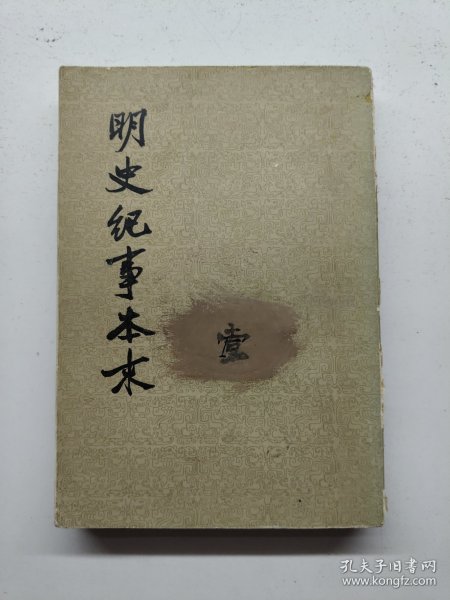 明史纪事本末
壹
孔夫子旧书网
www.kongfz.com